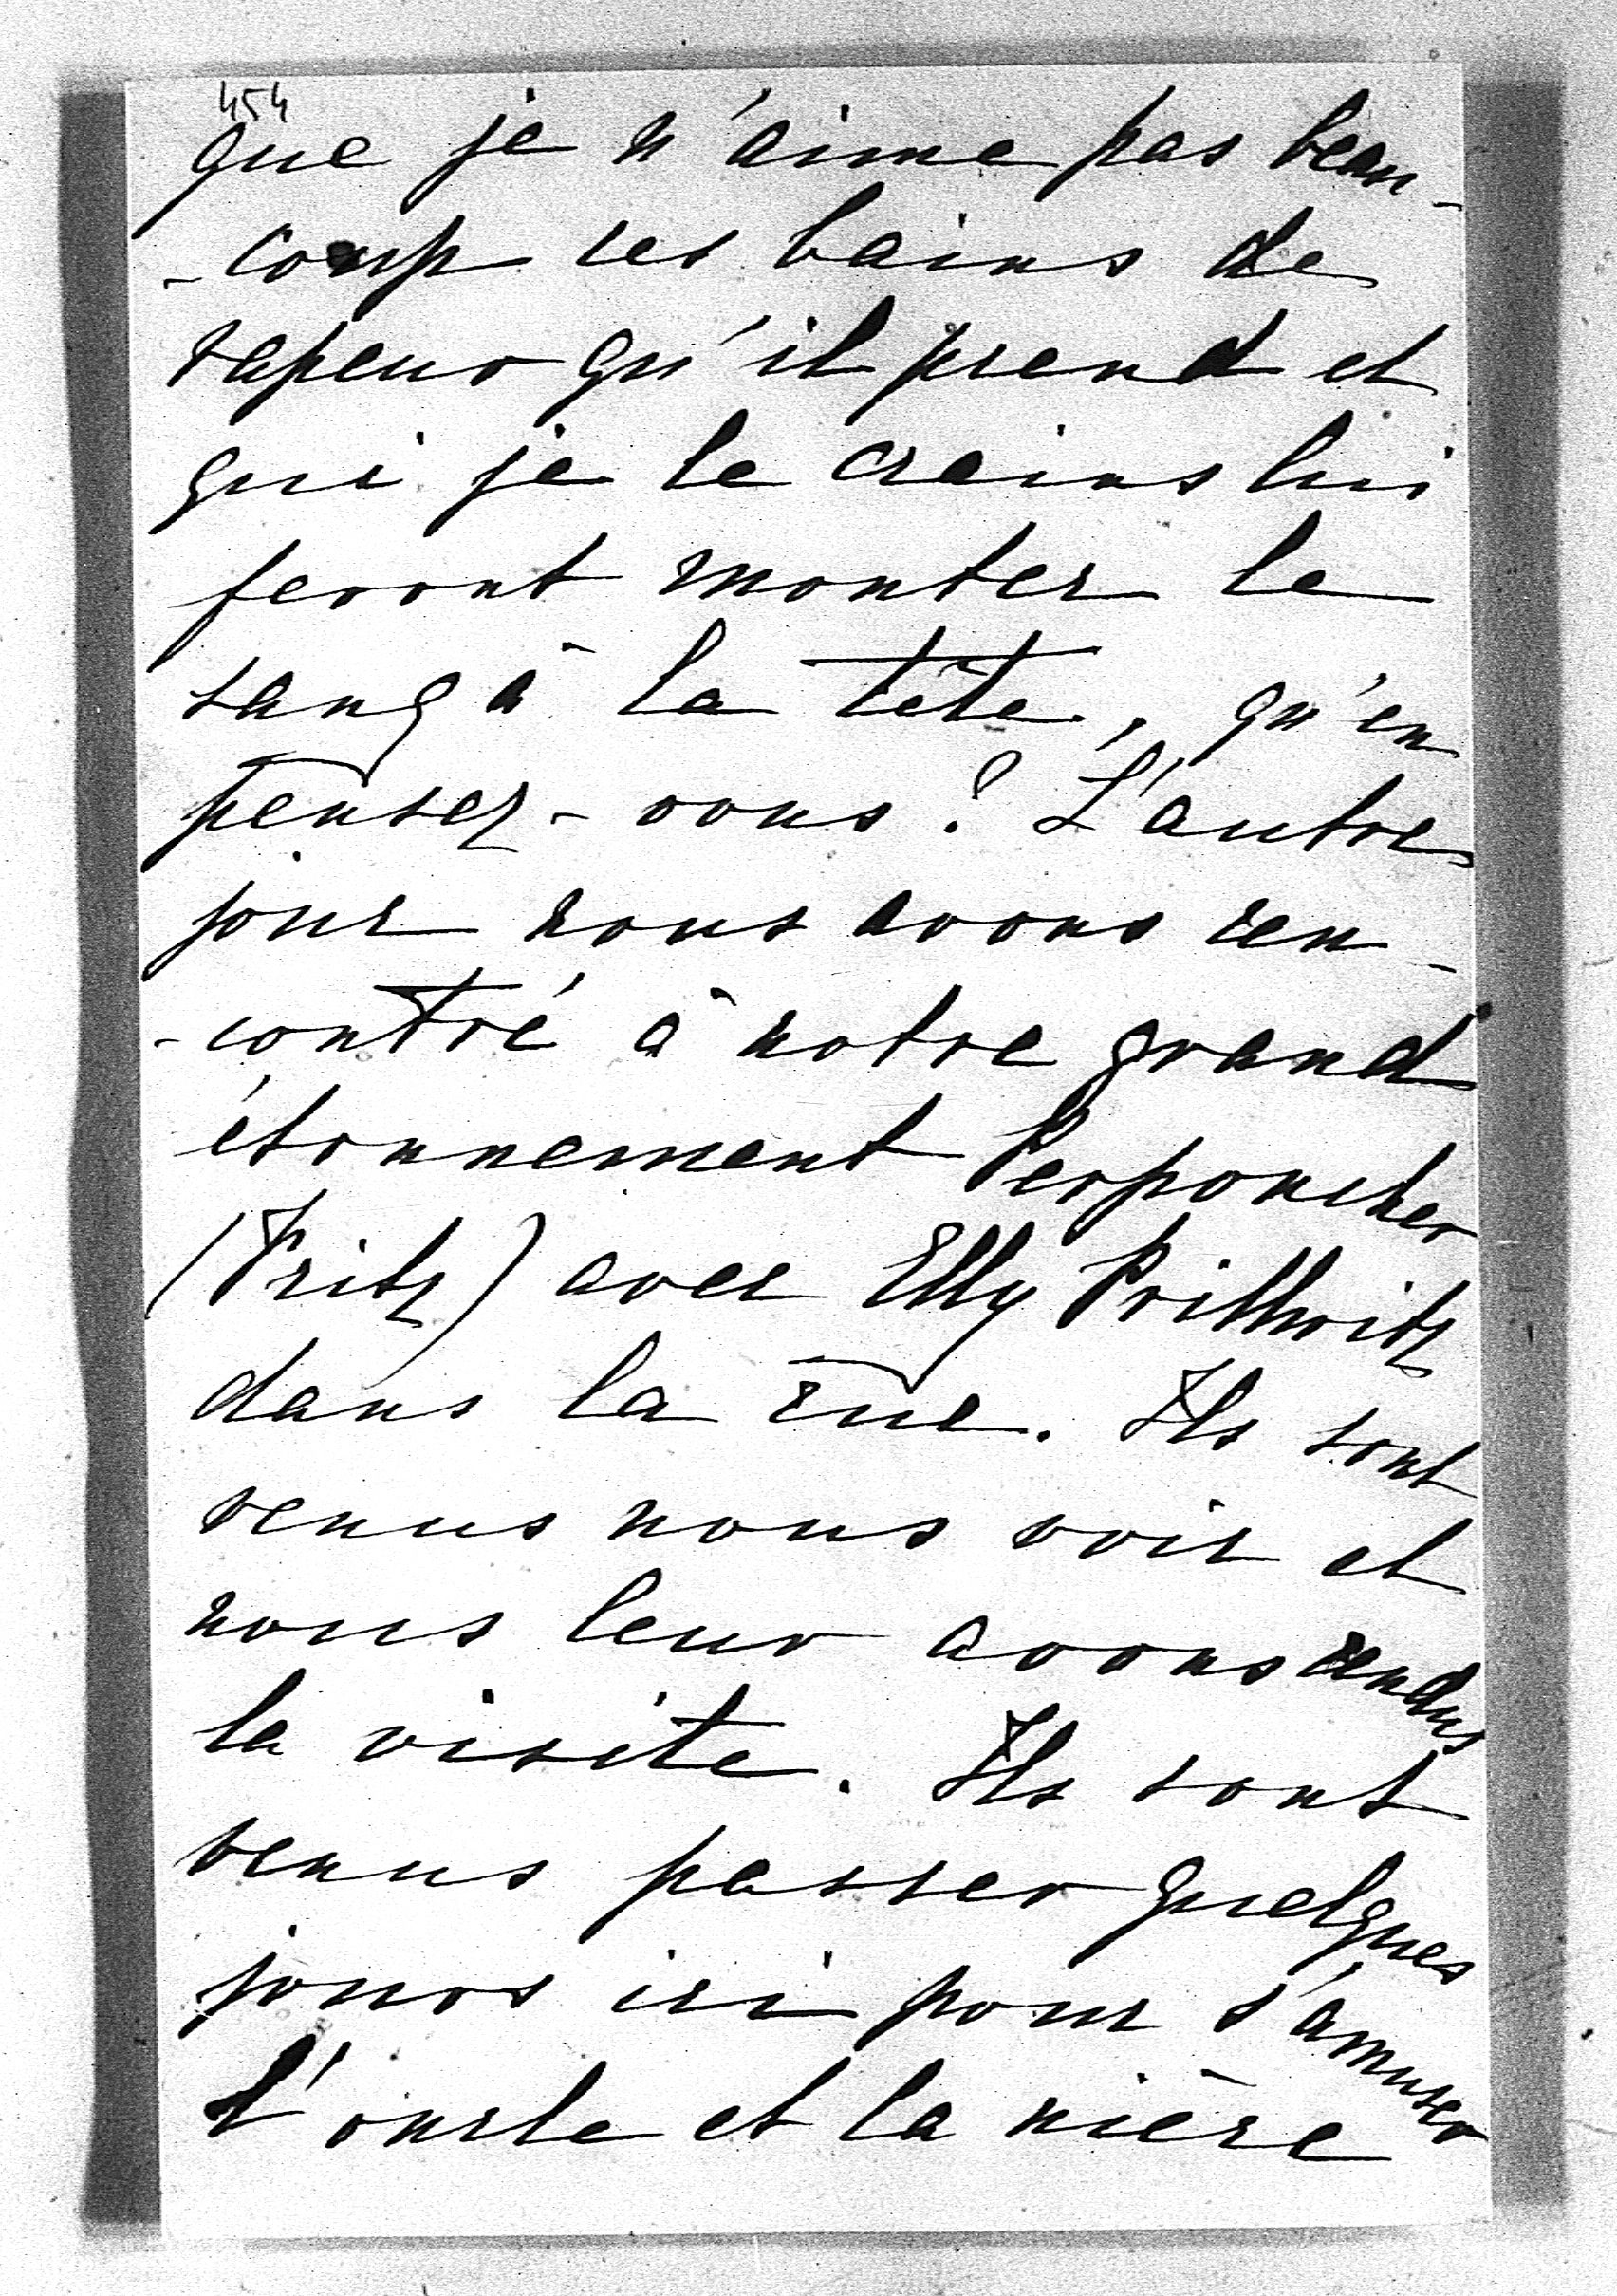 454
que je n'aime pas beau-
-coup ces bains de
vapeur qu'il prend et
qui je le crains lui
feront monter le
sang à la tête, qu'en
pensez-vous? L'autre
jour nous avons ren-
-contré à notre grand
étonnement Perponcher
(Fritz) avec Elly Prittwitz
dans la rue. Ils sont
venus nous voir et
nous leur avons rendus
la visite. Ils sont
venus passer quelques
jours ici pour s'amuser
l'oncle et la nièce